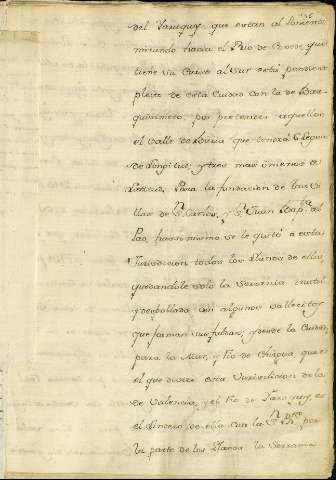 del Yaracuy, que estan al Poniente
mirando hacia el Rio de Coxede, que
tiene su Curso al Sur está pendiente
pleito de esta Ciudad con la de Bar-
quisimeto, por pretender aquellos
el Valle de que tendrá 6 leguas
de Longitud, y tres mas ó menos de
Latitud. Para la fundacion de las Vi-
llas de Sn. Carlos, y Sn. Juan Bapta. del
Pao, haun mismo se le quitó a esta
Jurisdiccion todos los Llanos de ellas,
quedandole solo la Serrania inutil
y desbollada con algunos vallecitos
que forman sus faldas, y desde la Ciudad
para la Mar, y Rio de Chirgua que es
el que divide esta Jurisdiccion de la
de Valencia, y el Rio de Yaracuy, es
el Lindero de ella con la Sn. Phe. por
la parte de los Llanos la Serrania